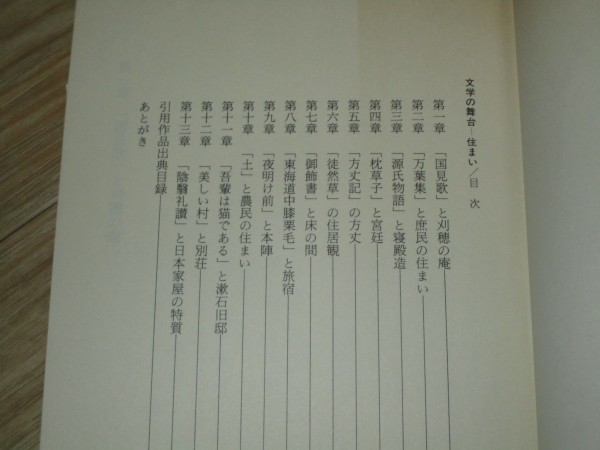 文学の舞台―住まい/目 次
第一章 「国見歌」と刈穂の庵
第二章 「万葉集」と庶民の住まい
第三章 「源氏物語」と寝殿造
第四章 「枕草子」と宮廷
第五章 「方丈記」の方丈
第六章 「徒然草」の住居観
第七章 「御飾書」と床の間
第八章 「東海道中膝栗毛」と旅宿
第九章 「夜明け前」と本陣
第十章 「土」と農民の住まい
第十一章 「吾輩は猫である」と漱石旧邸
第十二章 「美しい村」と別荘
第十三章 「陰翳礼讃」と日本家屋の特質
引用作品出典目録
あとがき